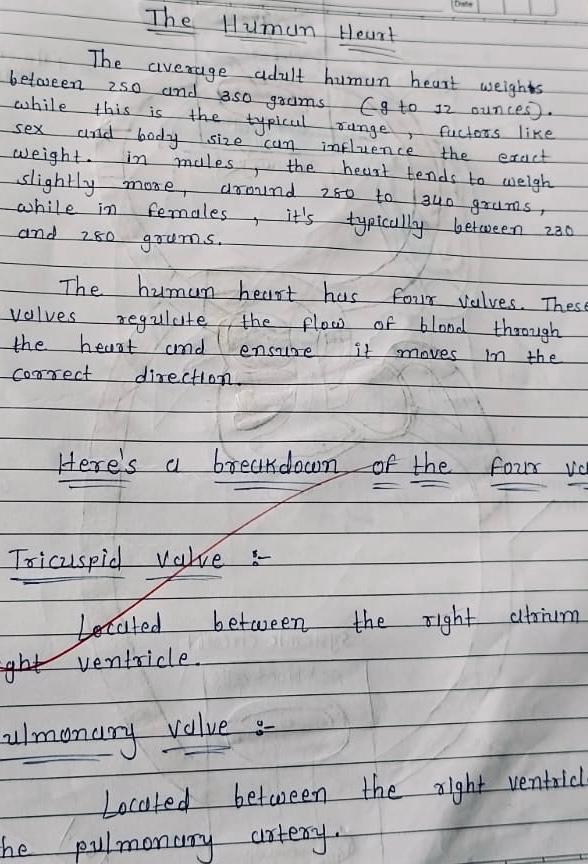 Date
The Human Heart
The average adult human heart weights
between 250 and 350 grams (9 to 12 ounces).
while this is the typical range, factors like
sex and body size can influence the exact
weight. in males, the heart tends to weigh
slightly more, around 280 to 340 grams,
while in females, it's typically between 230
and 280 grams.
The human heart has four valves. These
valves regulate the flow of blood through
the heart and ensure it moves in the
correct direction.
Here's a breakdown of the four va
Tricuspid valve :-
Located between the right atrium
ght ventricle.
ulmonary valve :-
Located between the right ventricl
he pulmonary artery.